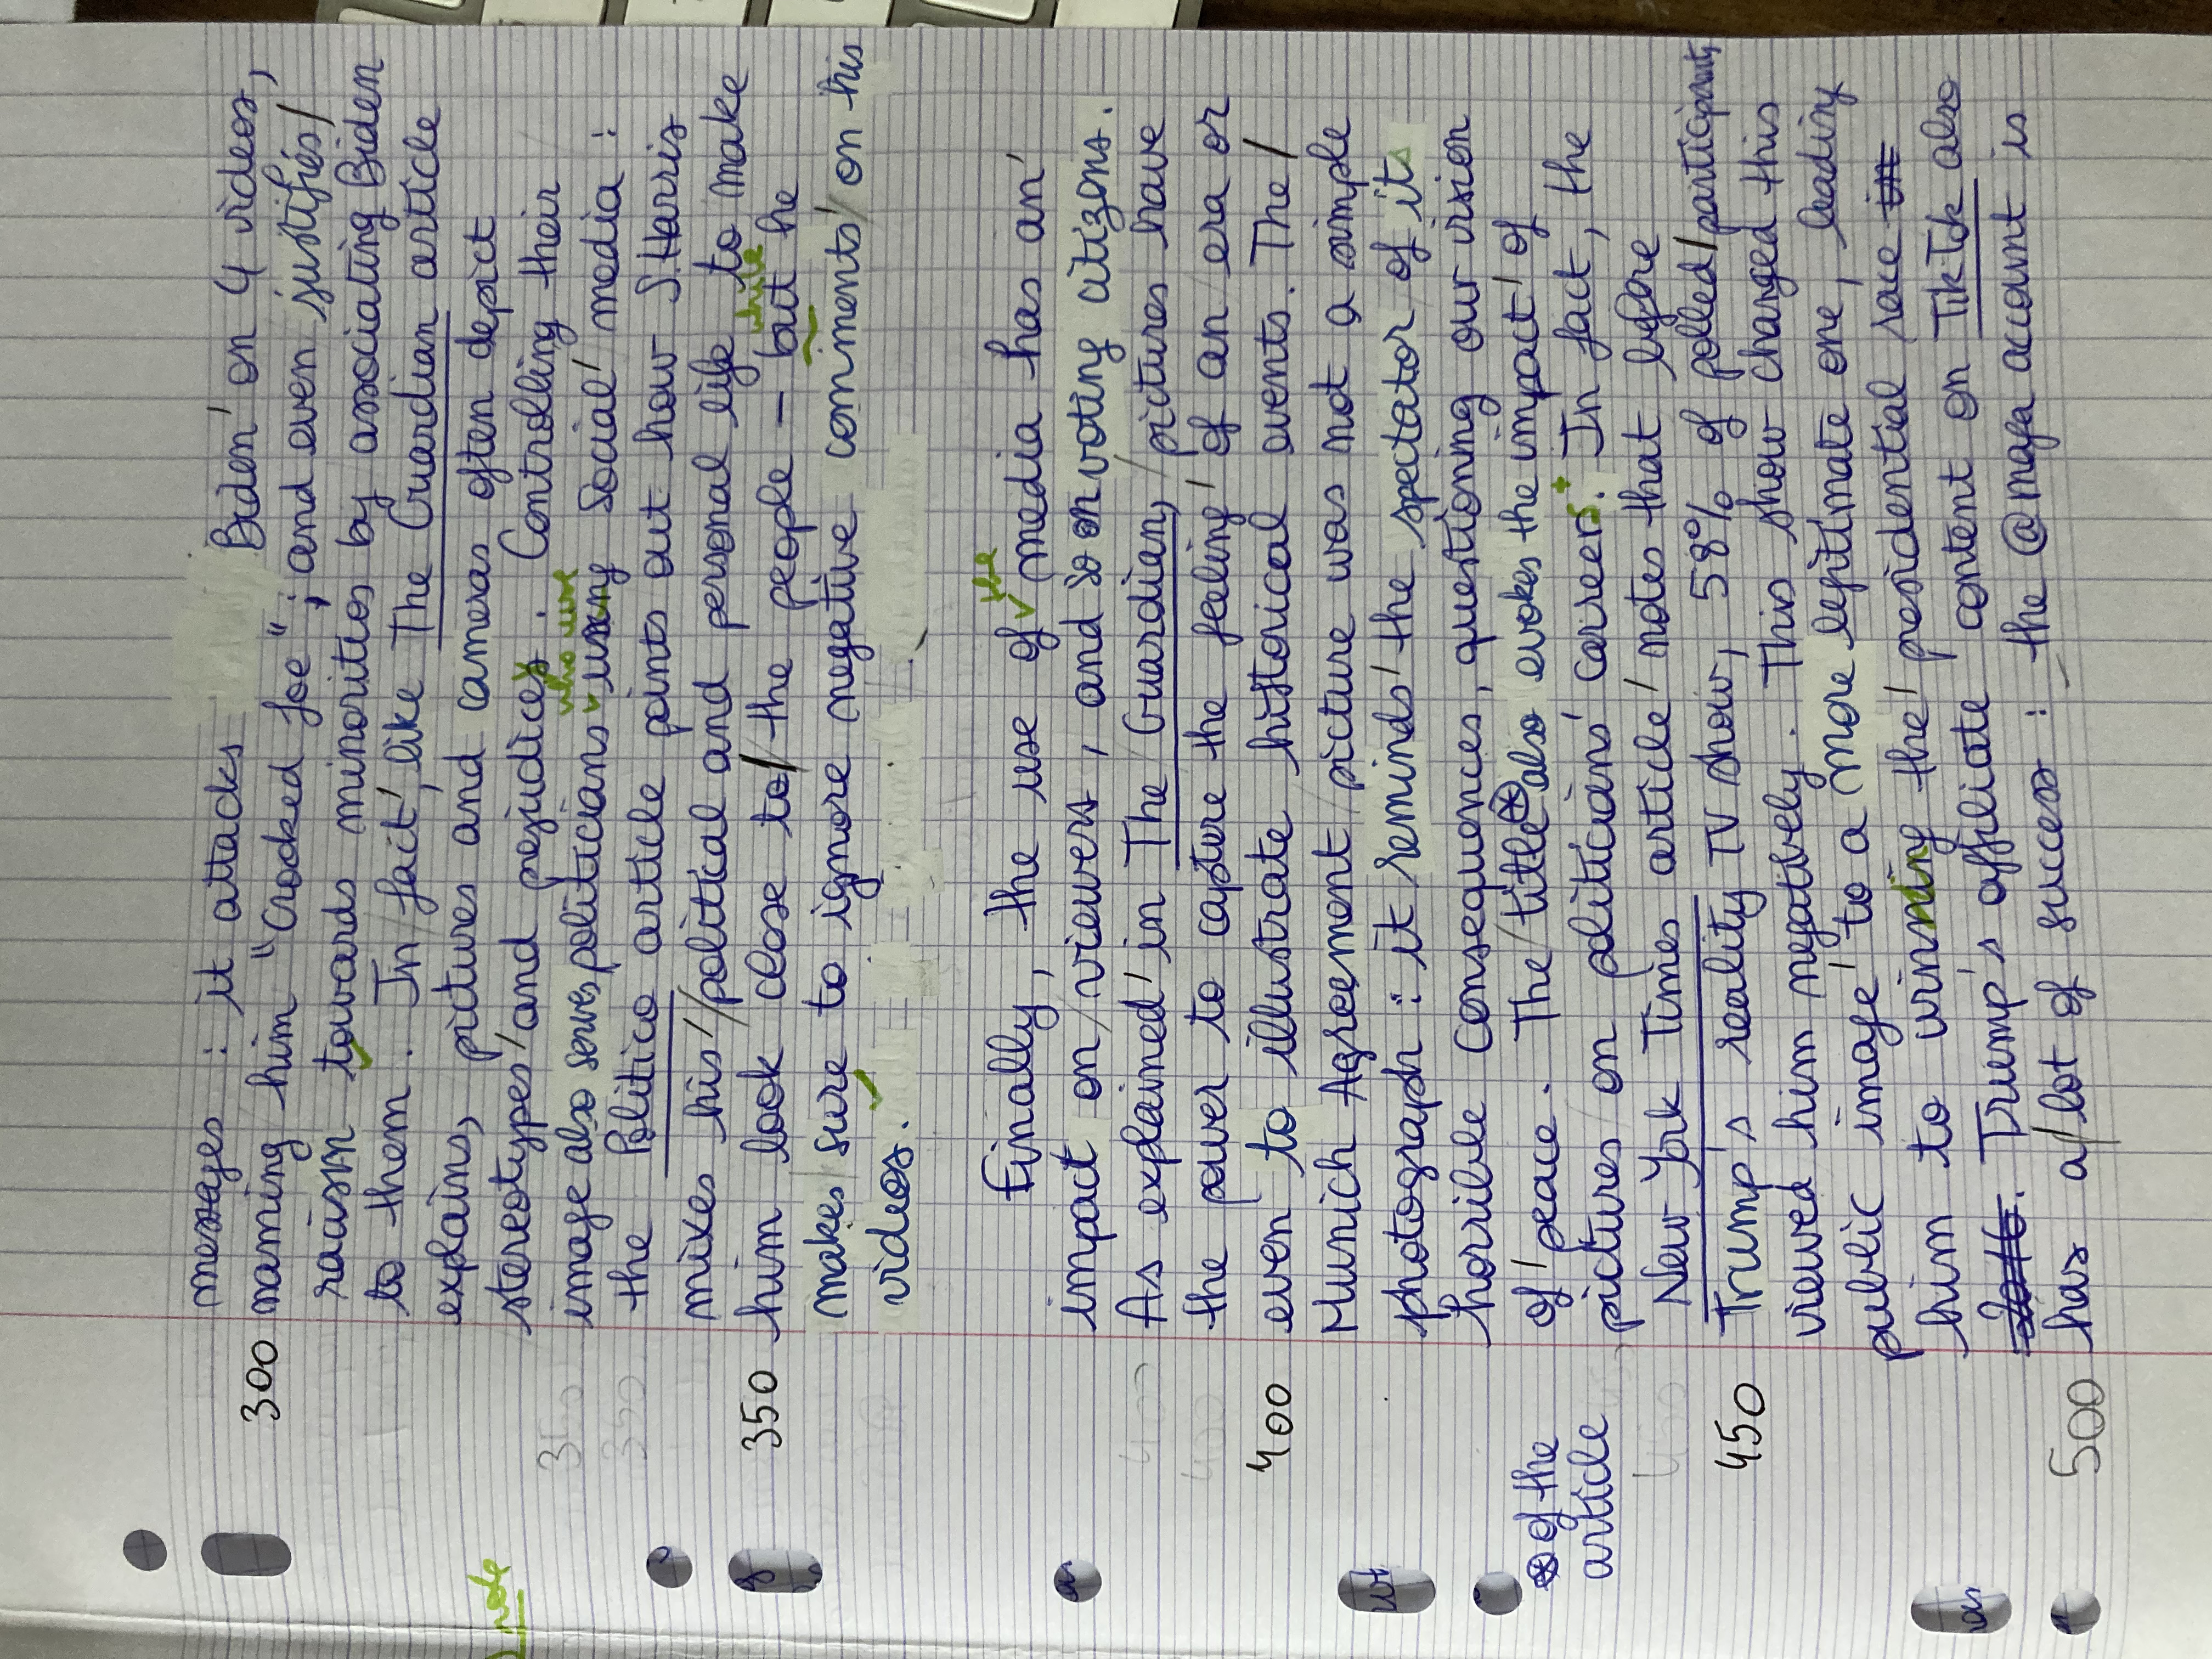 messages : it attacks Biden' on 4 videos,
300 naming/him "Crooked Joe"; and even justifies/
racism towards minorities by associating Biden
to them. In/fact', like The Guardian article
explains, pictures and cameras often depict
stereotypes'and prejudices. Controling their
who use
image also serves politicians using social' media :
the Politico article points out how S.Harris
mixes his'/political and personal life to make
while
350 him look close to/the people – but he
makes/sure to ignore negative comments'/on his
videos.
the
Finally, the use of media has an'
impact on/viewers, and so on voting citizens.
As explained' in The/Guardian,/pictures have
the power to capture the feeling' of an era or
400 even to illustrate historical events. The/
Munich Agreement/picture was not a simple
photograph : it reminds' the spectator/of its
horrible consequences, questioning our vision
of/peace. The/title also evokes the impact' of
⊛ of the
article
pictures/on politicians' careers. In fact, the
New York Times article/notes that before
450 Trump's reality TV show, 58% of polled/participants
viewed him negatively. This show changed this
public image' to a more legitimate one, leading
him to winning the' presidential race
. Trump's affiliate content on TikTok also
500 has a/lot of success : the @maga account is